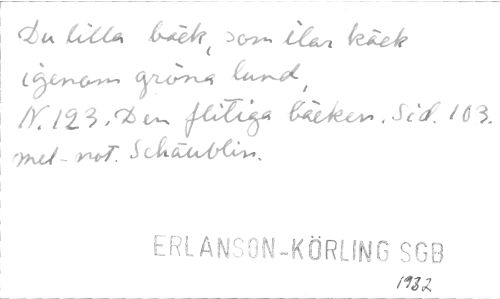 Du lilla bäck, som ilar käck
igenom gröna lund,
N. 123. Den flitiga bäcken. Sid. 103.
mel-not. Schäublin.
ERLANSON-KÖRLING SGB
1932